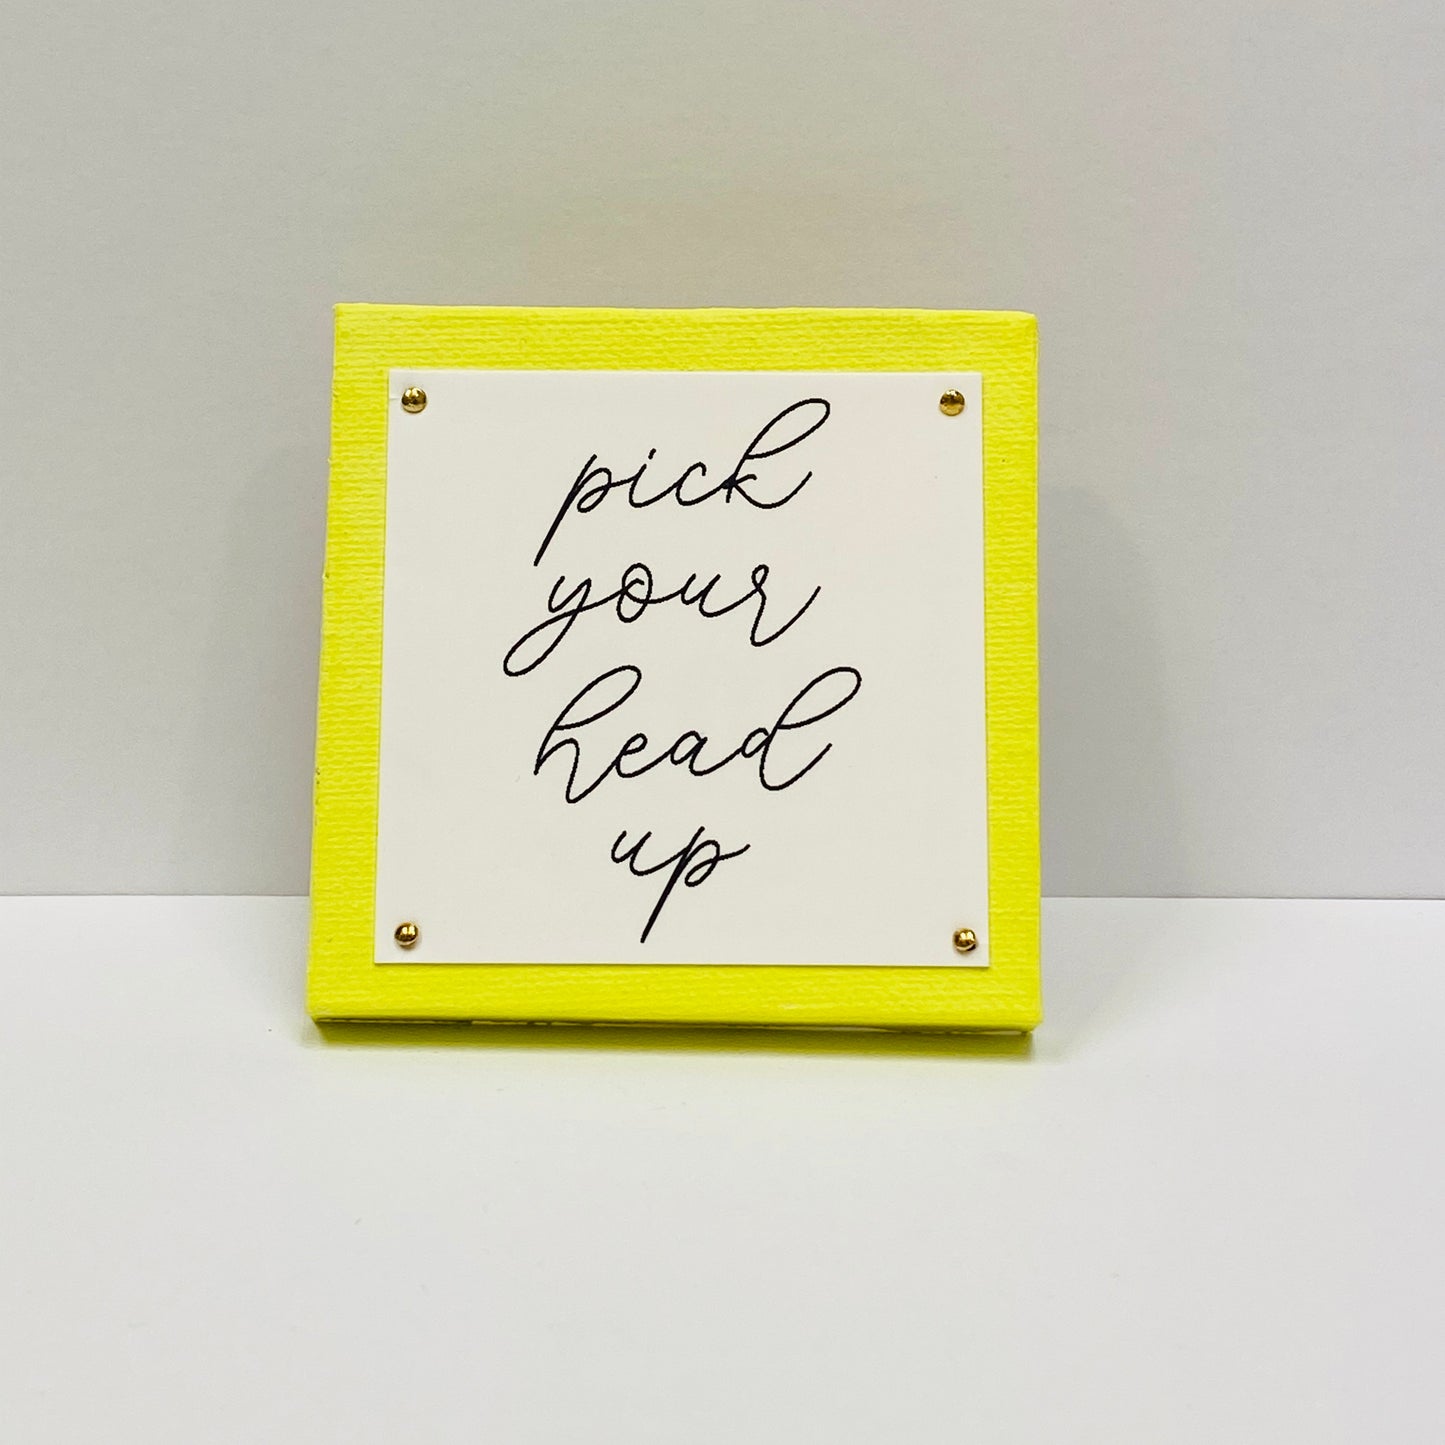 pick
your
head
up